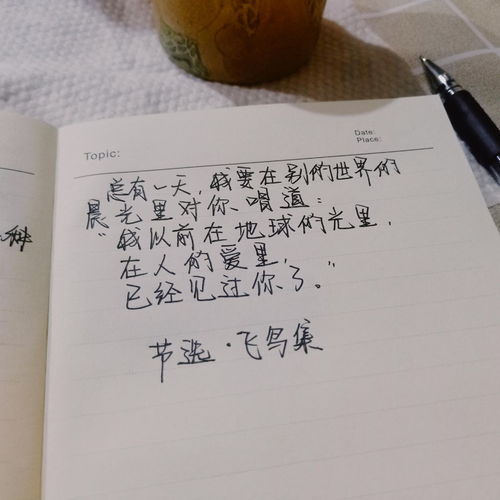 种
Topic:
Date:
Place:
总有一天，我要在别的世界的
晨光里对你唱道：
“我以前在地球的光里，
在人的爱里，
已经见过你了。”
节选·飞鸟集